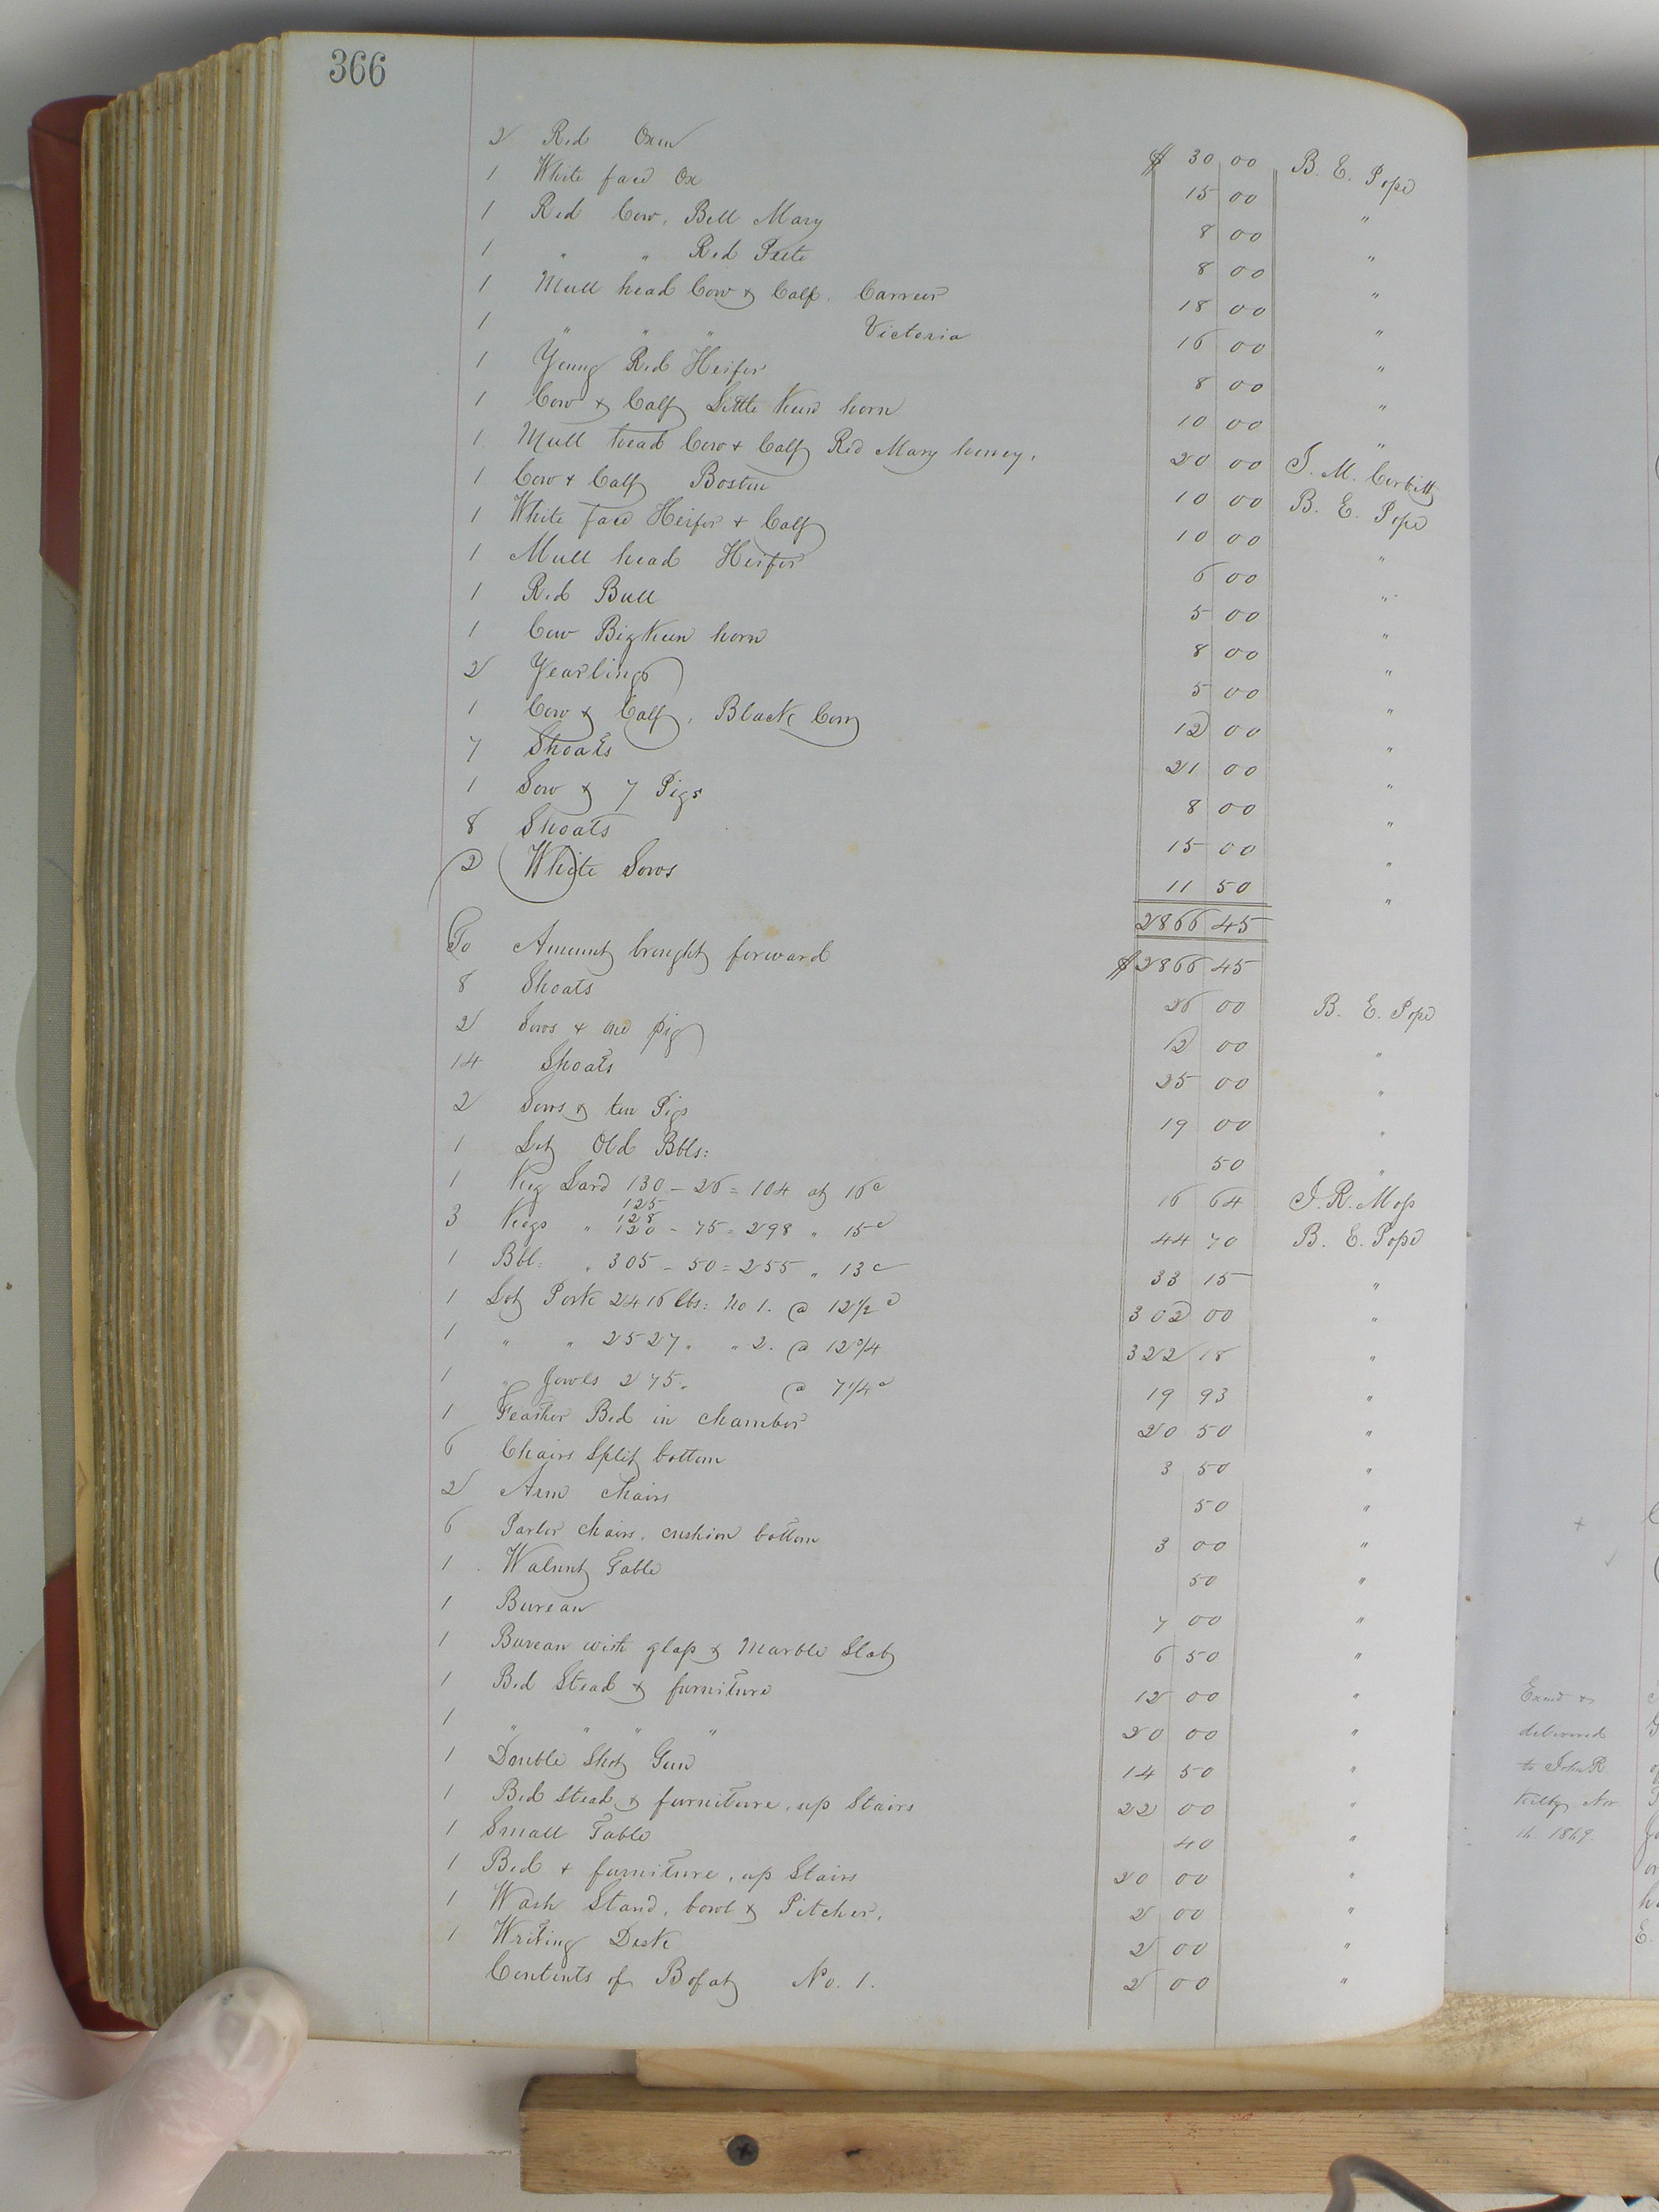 366
2 Red Oxen $ 30 00 B. E. Pope
1 White face Ox 15 00 "
1 Red Cow, Bell Mary 8 00 "
1 " " Red Pete 8 00 "
1 Mull head Cow & Calf. 18 00 "
1 " " " Victoria 16 00 "
1 Young Red Heifer 8 00 "
1 Cow & Calf Little Keen horn 10 00 "
1 Mull head Cow & Calf Red Mary 20 00 J. M. Corbitt
1 Cow & Calf Boston 10 00 B. E. Pope
1 White face Heifer & Calf 10 00 "
1 Mull head Heifer 6 00 "
1 Red Bull 5 00 "
1 Cow Big Keen horn 8 00 "
2 Yearlings 5 00 "
1 Cow & Calf, Black Cow 12 00 "
7 Shoats 21 00 "
1 Sow & 7 Pigs 8 00 "
8 Shoats 15 00 "
2 White Sows 11 50 "
2866 45
To Amount brought forward $ 2866 45
8 Shoats 26 00 B. E. Pope
2 Sows & one pig 12 00 "
14 Shoats 25 00 "
2 Sows & ten Pigs 19 00 "
1 Lot Old Bbls: 50 "
1 Keg Lard 130 - 26 = 104 at 16c 16 64 J. R. Moss
125
128
3 Kegs " 120 - 75 = 298 " 15c 44 70 B. E. Pope
1 Bbl: " 305 - 50 = 255 " 13c 33 15 "
1 Lot Pork 2416 lbs: No 1. @ 12 1/2c 302 00 "
1 " " 2527 " " 2. @ 12 3/4 322 18 "
1 " Jowls 275 " @ 7 1/4c 19 93 "
1 Feather Bed in chamber 20 50 "
6 Chairs Split bottom 3 50 "
2 Arm chairs 50 "
6 Parlor chairs, cushion bottom 3 00 "
1 Walnut Table 50 "
1 Bureau 7 00 "
1 Bureau with glass & Marble Slab 6 50 "
1 Bed Stead & furniture 12 00 "
1 " " " " 20 00 "
1 Double Shot Gun 14 50 "
1 Bed Stead & furniture, up Stairs 22 00 "
1 Small Table 40 "
1 Bed & furniture, up Stairs 20 00 "
1 Wash Stand, bowl & Pitcher, 2 00 "
1 Writing Desk 2 00 "
Contents of Bofat No. 1. 2 00 "
Exmd &
delivered
to John R